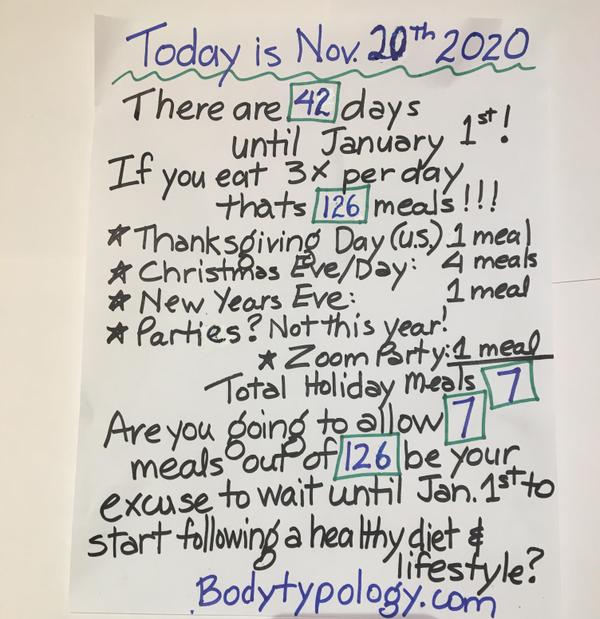 Today is Nov. 20th 2020
There are 42 days
until January 1st!
If you eat 3x per day
thats 126 meals!!!
★ Thanksgiving Day (U.S.) 1 meal
★ Christmas Eve/Day: 4 meals
★ New Years Eve: 1 meal
★ Parties? Not this year!
★ Zoom Party: 1 meal
Total Holiday Meals 7
Are you going to allow 7
meals out of 126 be your
excuse to wait until Jan. 1st to
start following a healthy diet &
lifestyle?
Bodytypology.com